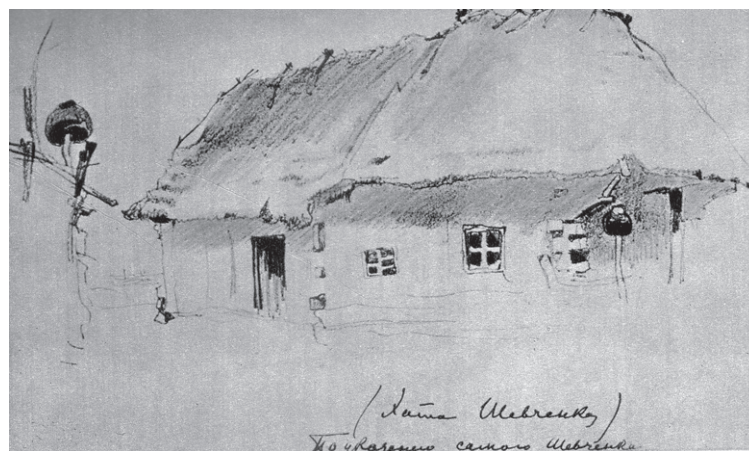 (Хата Шевченку)
По указанию самого Шевченки